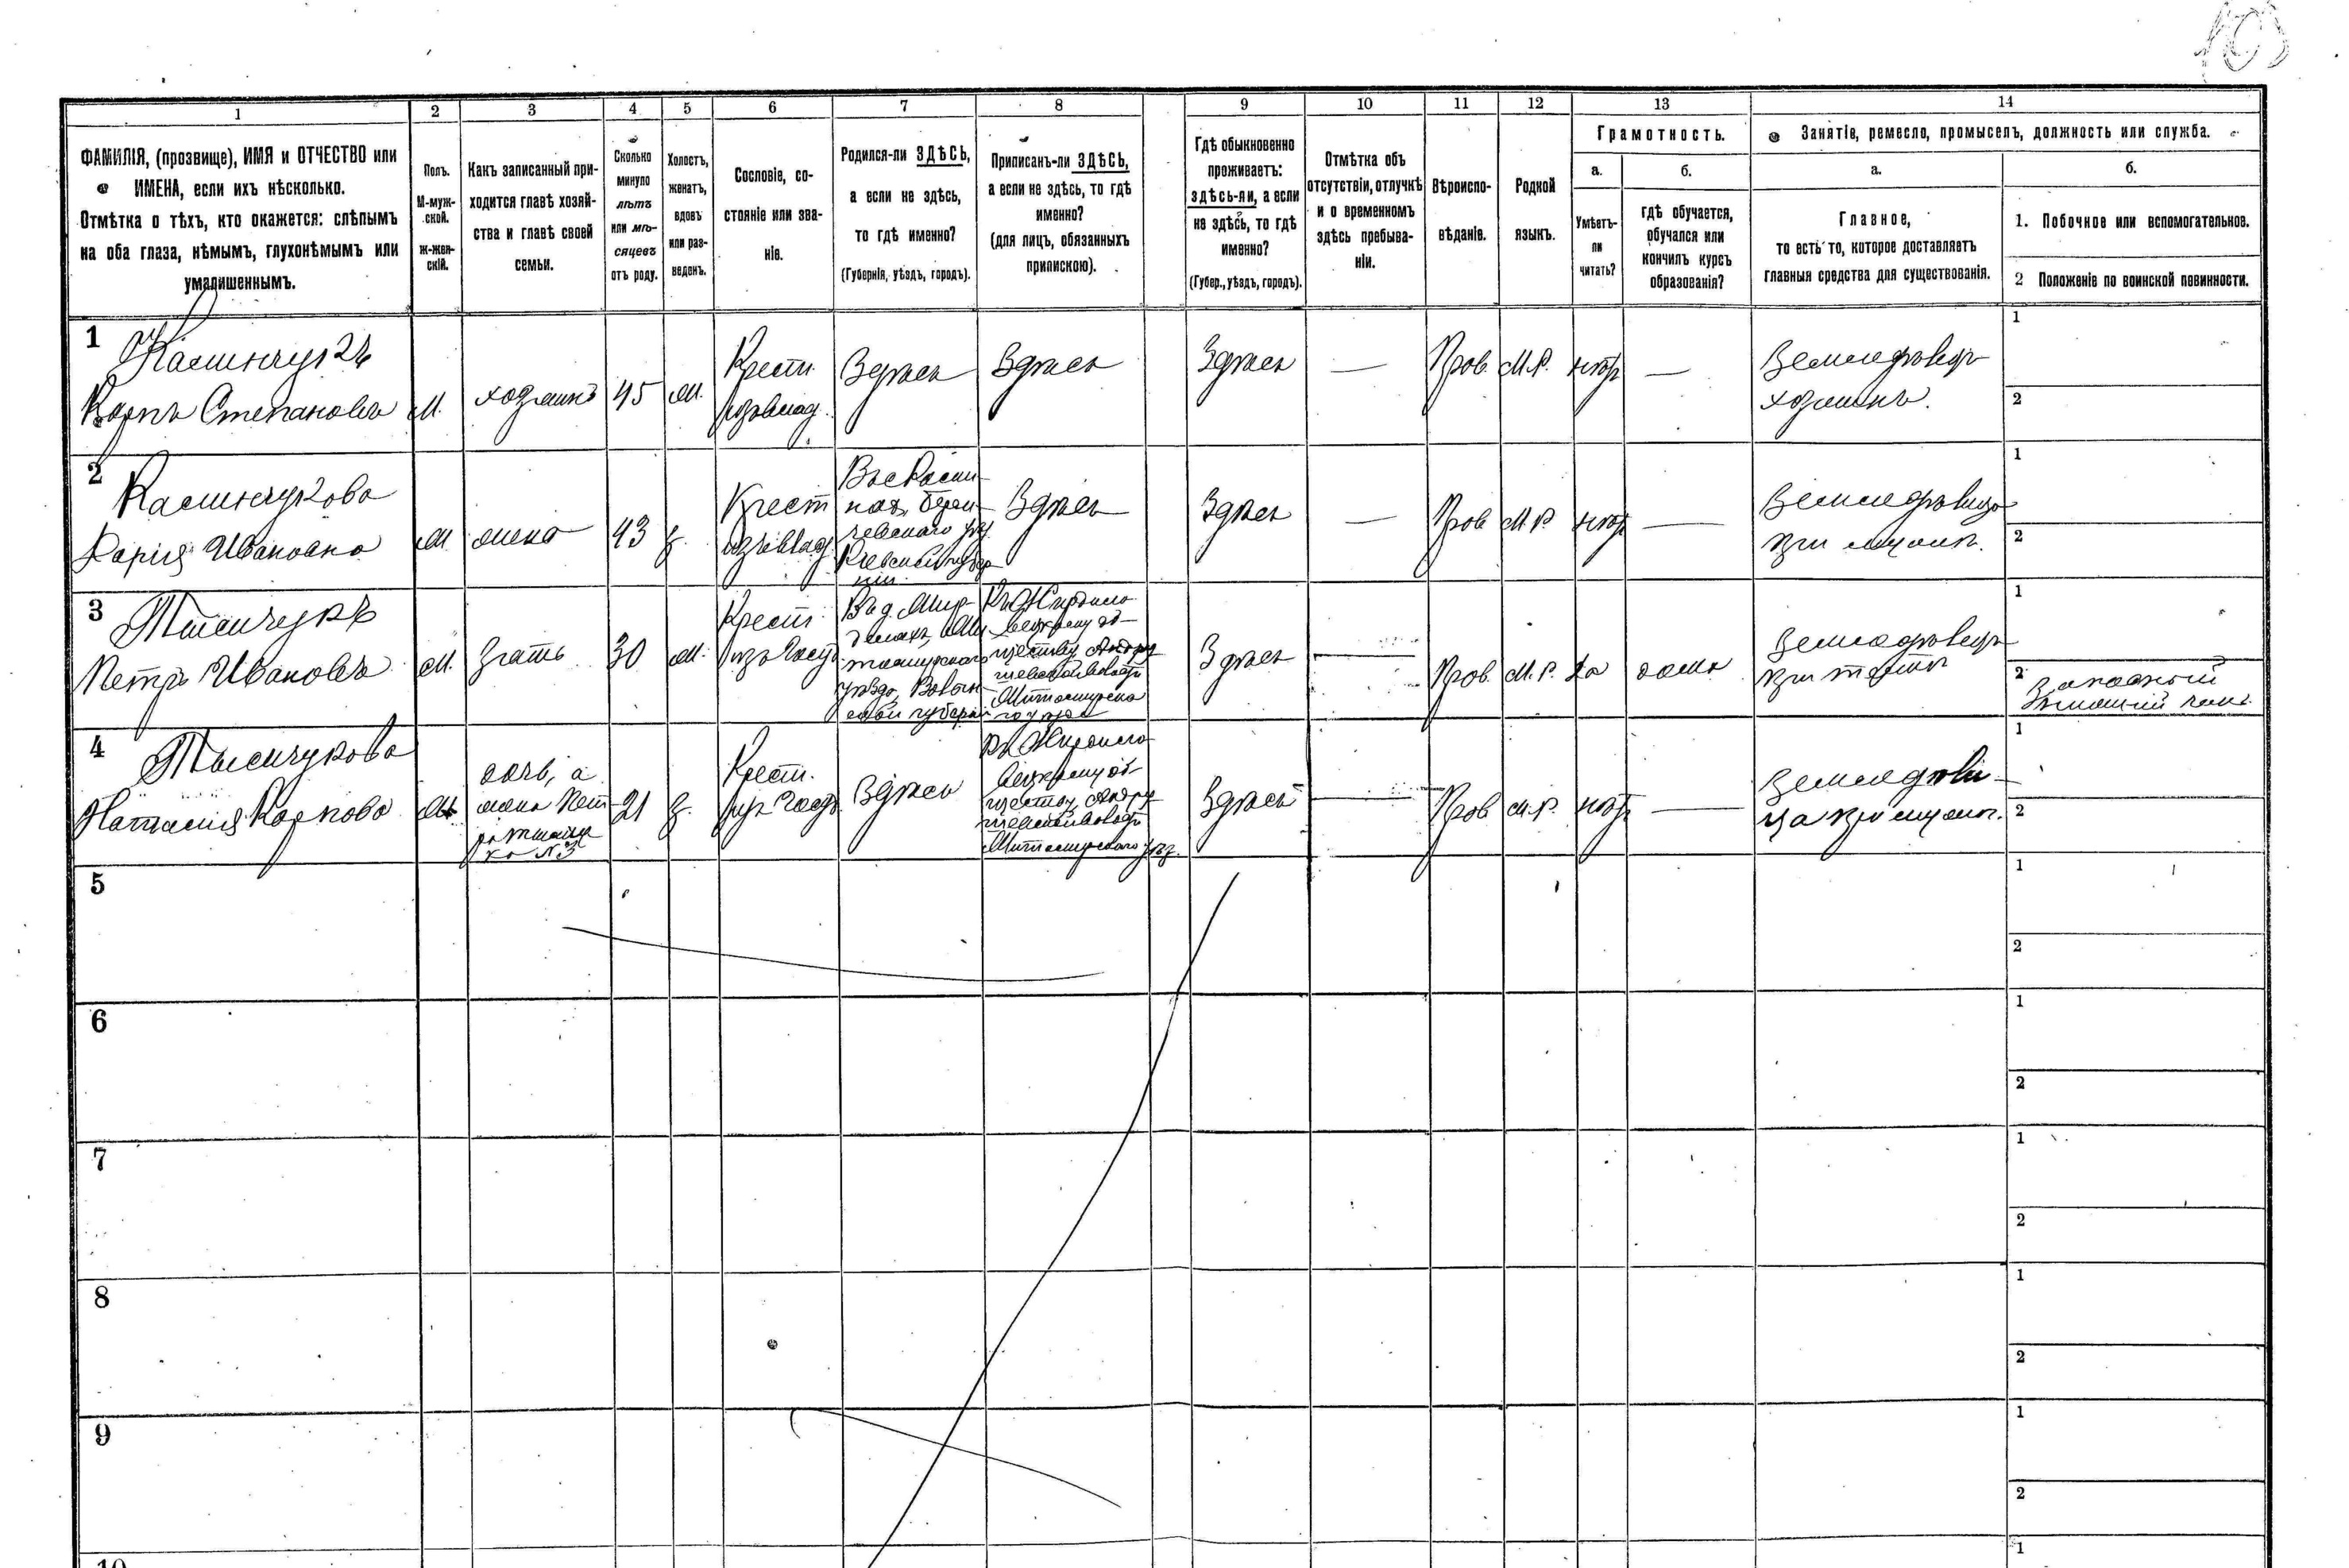 1 2 3 4 5 6 7 8 9 10 11 12 13 14
ФАМИЛІЯ, (прозвище), ИМЯ и ОТЧЕСТВО или
ИМЕНА, если ихъ нѣсколько.
Отмѣтка о тѣхъ, кто окажется: слѣпымъ
на оба глаза, нѣмымъ, глухонѣмымъ или
умалишеннымъ.
Полъ.
М-муж-
ской.
ж-жен-
скій.
Какъ записанный при-
ходится главѣ хозяй-
ства и главѣ своей
семьи.
Сколько
минуло
лѣтъ
или мѣ-
сяцевъ
отъ роду.
Холостъ,
женатъ,
вдовъ
или раз-
веденъ.
Сословіе, со-
стояніе или зва-
ніе.
Родился-ли ЗДѢСЬ,
а если не здѣсь,
то гдѣ именно?
(Губернія, уѣздъ, городъ).
Приписанъ-ли ЗДѢСЬ,
а если не здѣсь, то гдѣ
именно?
(для лицъ, обязанныхъ
припискою).
Гдѣ обыкновенно
проживаетъ:
здѣсь-ли, а если
не здѣсь, то гдѣ
именно?
(Губер., уѣздъ, городъ).
Отмѣтка объ
отсутствіи, отлучкѣ
и о временномъ
здѣсь пребыва-
ніи.
Вѣроиспо-
вѣданіе.
Родной
языкъ.
Грамотность.
а.
Умѣетъ-
ли
читать?
б.
гдѣ обучается,
обучался или
кончилъ курсъ
образованія?
Занятіе, ремесло, промыселъ, должность или служба.
а.
Главное,
то есть то, которое доставляетъ
главныя средства для существованія.
б.
1. Побочное или вспомогательное.
2 Положеніе по воинской повинности.
1
Калинчукъ
Карпъ Степановъ
М.
хозяинъ
45
Ж.
Крест.
изъ влад.
Здѣсь
Здѣсь
Здѣсь
—
Прав.
М.Р.
нѣтъ
—
Земледѣлецъ
хозяинъ.
1
2
2
Калинчукова
Дарія Ивановна
Ж
жена
43
З.
Крест
изъ влад.
Бердичевскаго уѣз.
Кіевской губер
ніи.
Здѣсь
Здѣсь
—
Прав
М.Р.
нѣтъ
—
Земледѣлица
при мужѣ.
1
2
3
Тысячукъ
Петръ Ивановъ
М.
Зять
30
Ж.
Крест.
изъ Госуд
Житомирскаго
уѣзда, Волын-
ской губерніи
обществу
Житомирска
го уѣзда
Здѣсь
—
Прав.
М.Р.
Да
дома
Земледѣлецъ
при тестѣ
1
2
Запасный
4
Тысячукова
Наталія Карпова
Ж
дочь, а
жена Пет
ра Тысячу
ка №3
21
З.
Крест.
изъ Госуд
Здѣсь
обществу
Житомирскаго уѣз.
Здѣсь
—
Прав
М.Р.
нѣтъ
—
Земледѣли-
ца при мужѣ.
1
2
5
1
2
6
1
2
7
1
2
8
1
2
9
1
2
10
1